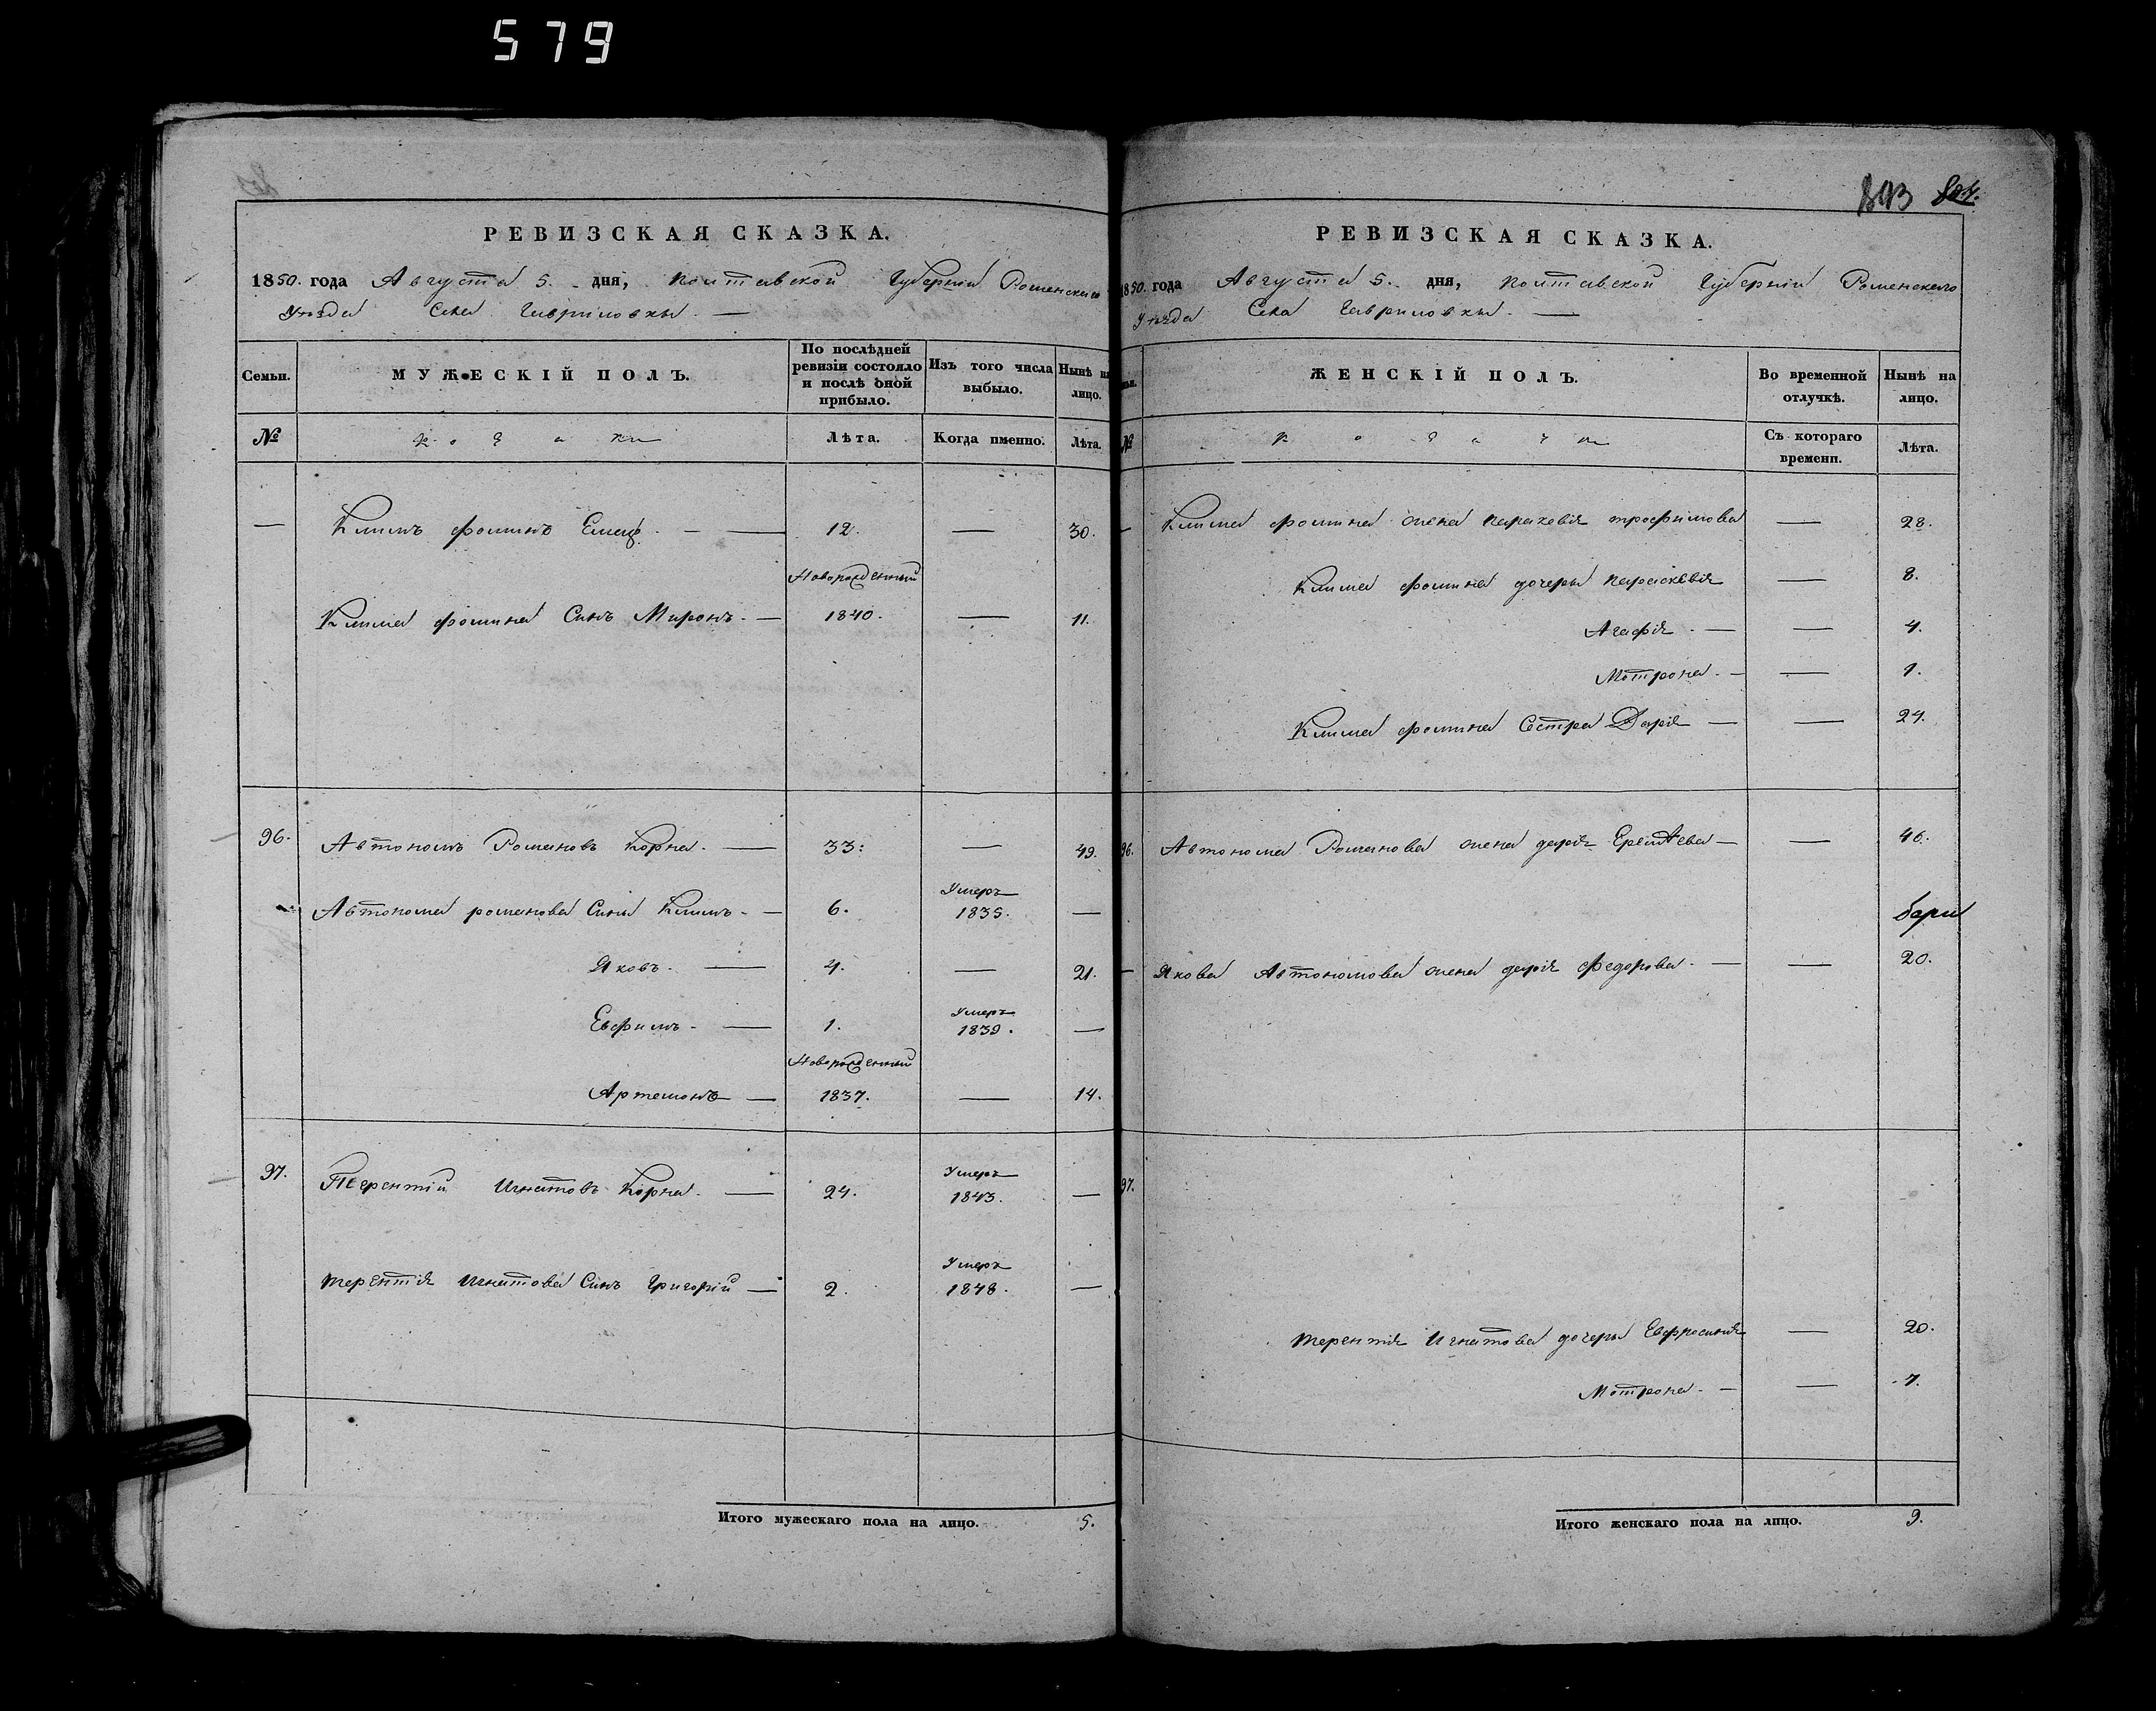 579
РЕВИЗСКАЯ СКАЗКА.
1850. года Августа 5. дня, Полтавской Губерніи Роменскаго
Уѣзда Села Гавриловки. —
Семьи.
МУЖЕСКІЙ ПОЛЪ.
По послѣдней ревизіи состояло и послѣ оной прибыло.
Изъ того числа выбыло.
Нынѣ на лицо.
№
Лѣта.
Когда именно.
Лѣта.
— Климъ Фоминъ Емец. — — 12. — 30.
Новорожденный
Клима Фомина Сынъ Миронъ. — 1840. — 11.
96. Автономъ Романовъ Корна. — 33: — 49.
Умеръ
Автонома романова Сыны Климъ. — 6. 1835. —
Яковъ. — 4. — 21.
Умеръ
Евфимъ. — 1. 1839. —
Новорожденный
Артемонъ — 1837. — 14.
Умеръ
97. Терентій Игнатовъ Корна. — 24. 1843. —
Умеръ
Терентія Игнатова Сынъ Григорій — 2. 1848. —
Итого мужескаго пола на лицо. 5.
803 804.
РЕВИЗСКАЯ СКАЗКА.
1850. года Августа 5. дня, Полтавской Губерніи Роменскаго
Уѣзда Села Гавриловки. —
ЖЕНСКІЙ ПОЛЪ.
Во временной отлучкѣ.
Нынѣ на лицо.
№
Съ котораго времени.
Лѣта.
— Клима Фомина жена параскевія трофимова — 28.
Клима Фомина дочеры параскевія — 8.
Агафія. — — 4.
Мотрона. — — 1.
Клима Фомина Сестра Дарія — — 24.
96. Автонома Романова жена дарія — — 46.
— Якова Автономова жена дарія Федорова. — — 20.
97.
Терентія Игнатова дочеры Евфросинія — 20.
Мотрона. — — 7.
Итого женскаго пола на лицо. 9.